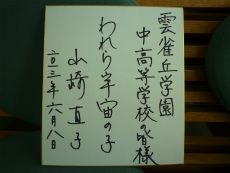 雲雀丘学園
中高等学校の皆様
われら宇宙の子
山崎直子
二〇一三年六月八日